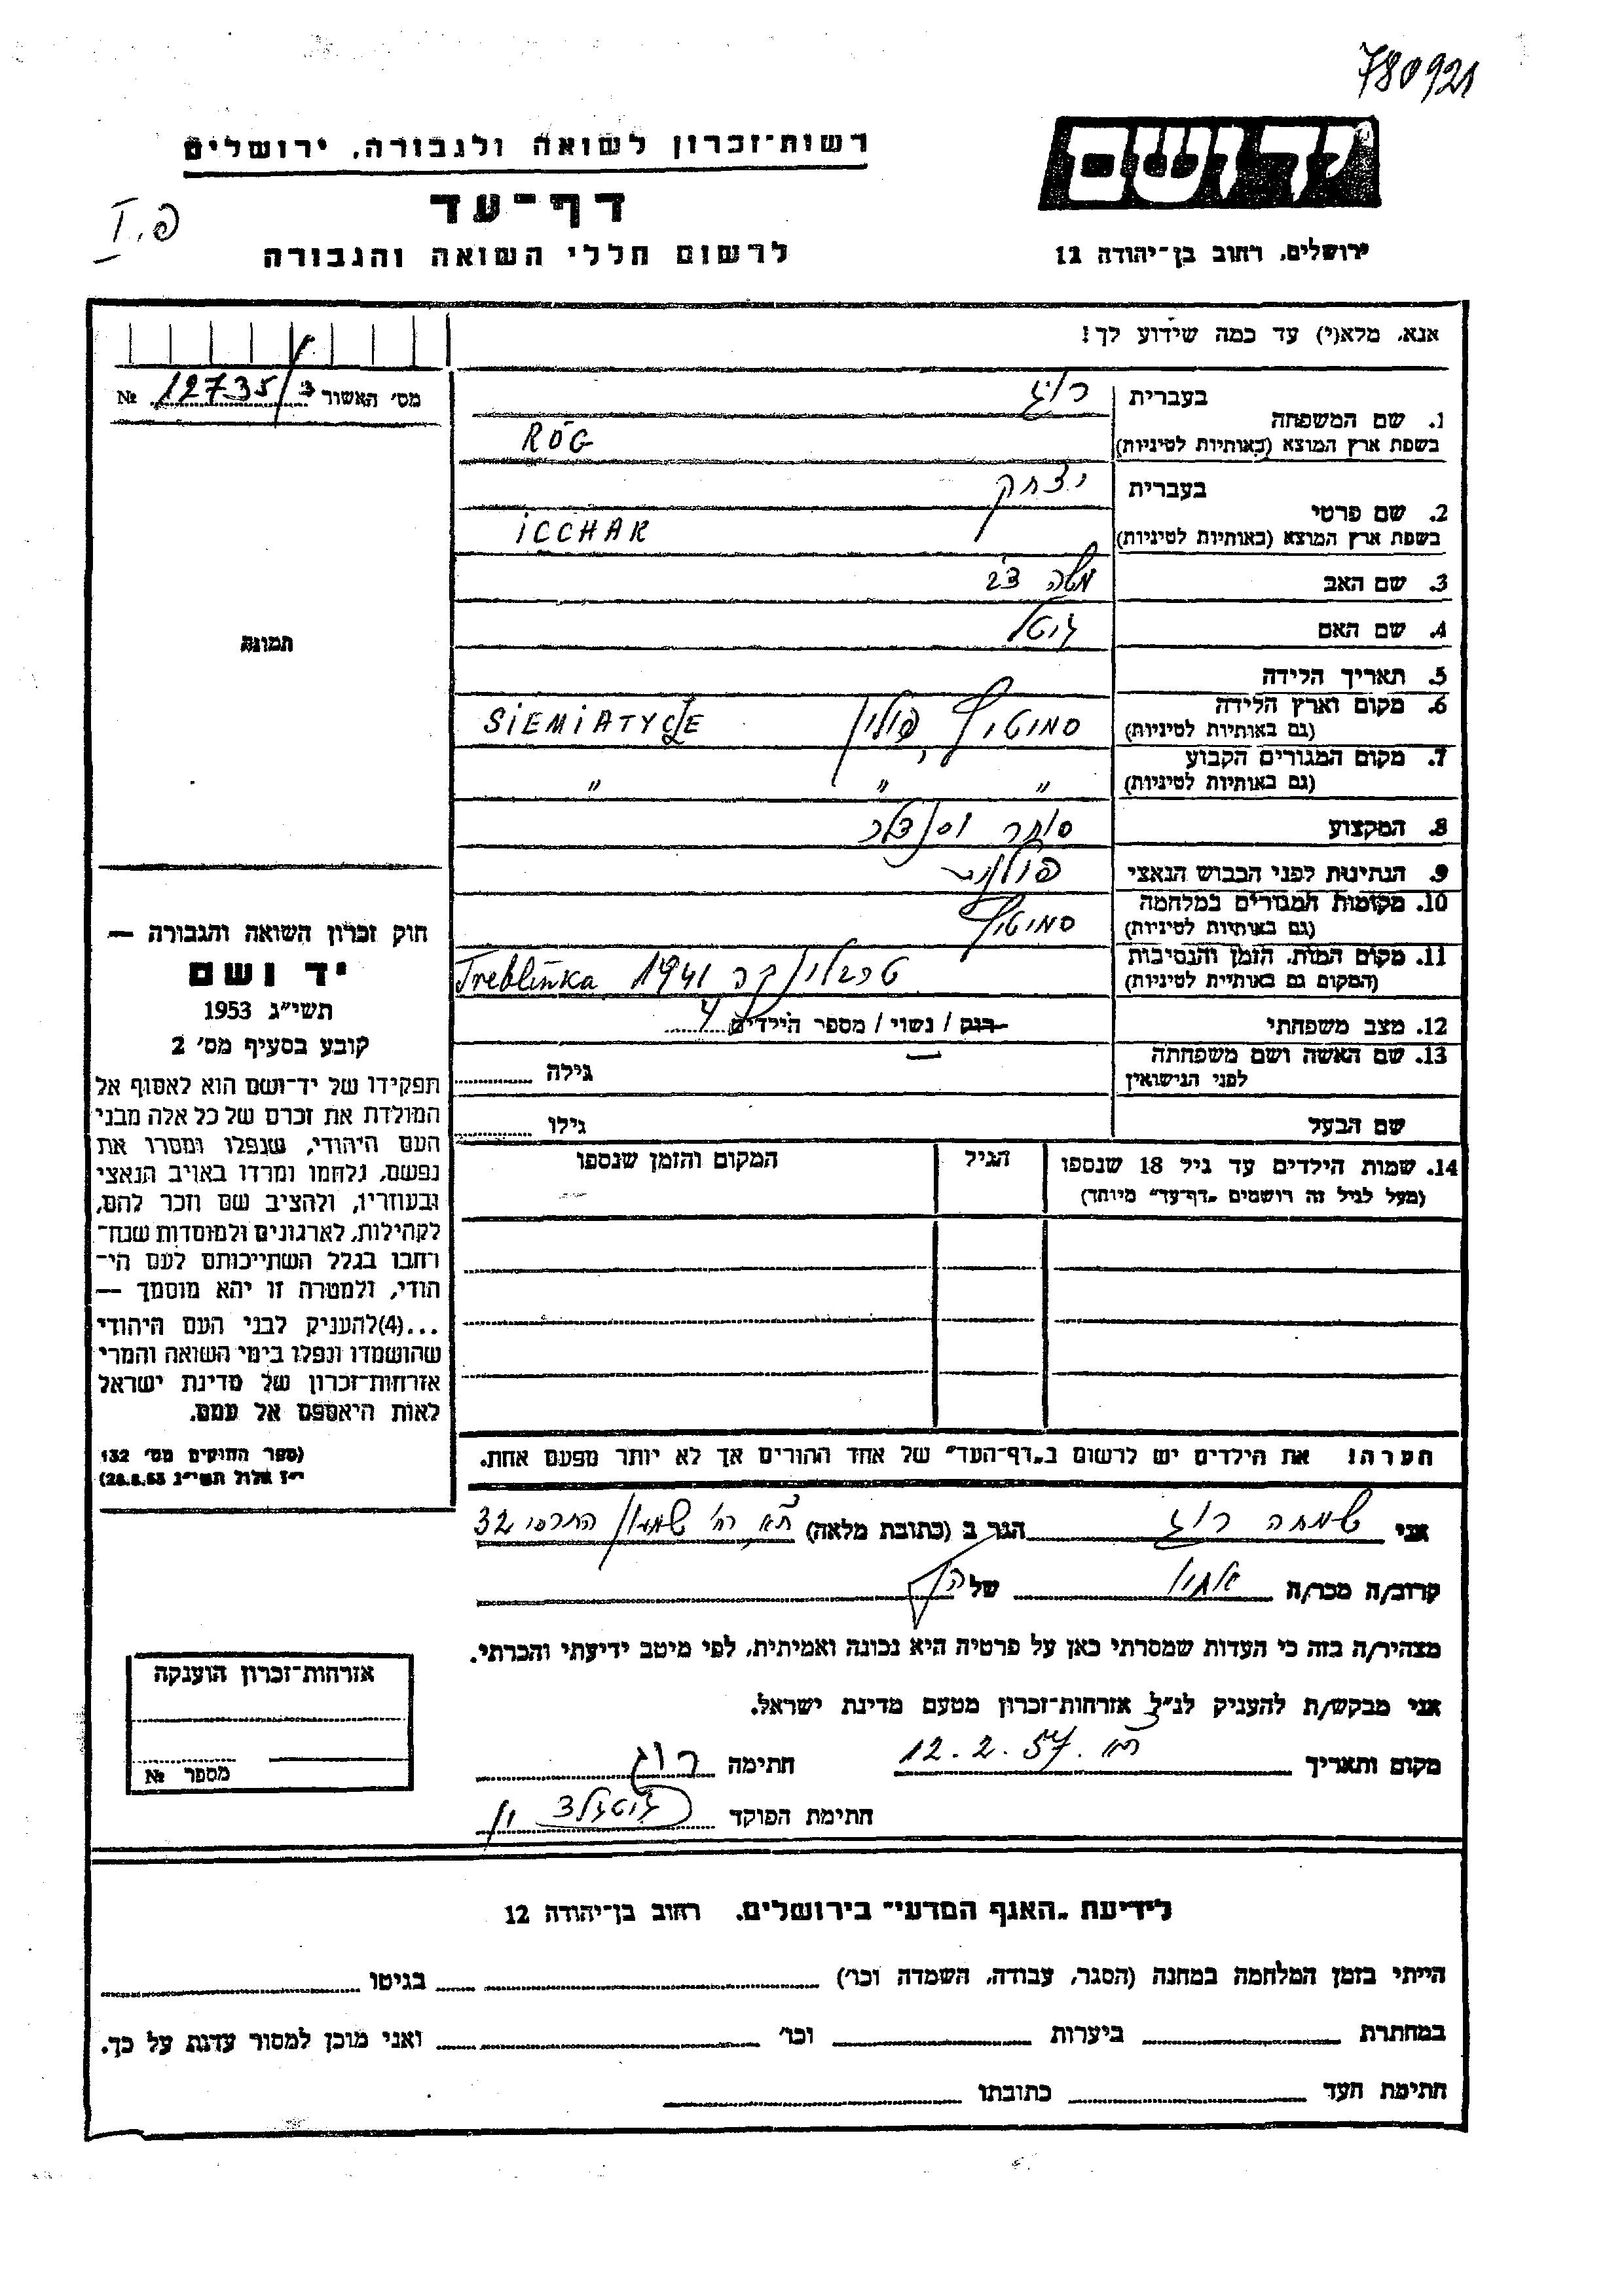 780921
יד ושם
רשות־זכרון לשואה ולגבורה, ירושלים
דף־עד
לרשום חללי השואה והגבורה
ירושלים, רחוב בן־יהודה 12
פ.I
אנא, מלא(י) עד כמה שידוע לך!
מס׳ האשור 12735/ №
1. שם המשפחה בעברית רוג
בשפת ארץ המוצא (באותיות לטיניות) RÓG
2. שם פרטי בעברית יצחק
בשפת ארץ המוצא (באותיות לטיניות) ICCHAK
3. שם האב משה
4. שם האם גיטל
5. תאריך הלידה
6. מקום וארץ הלידה סמיטיץ, פולין SIEMIATYCZE
(גם באותיות לטיניות)
7. מקום המגורים הקבוע " " "
(גם באותיות לטיניות)
8. המקצוע סוחר
9. הנתינות לפני הכבוש הנאצי פולנית
10. מקומות המגורים במלחמה סמיטיץ
(גם באותיות לטיניות)
11. מקום המות, הזמן והנסיבות טרבלינקה 1941 Treblinka
(המקום גם באותיות לטיניות)
12. מצב משפחתי רוק / נשוי / מספר הילדים 4
13. שם האשה ושם משפחתה — גילה
לפני הנישואין
שם הבעל גילו
14. שמות הילדים עד גיל 18 שנספו הגיל המקום והזמן שנספו
(מעל לגיל זה רושמים „דף־עד” מיוחד)
הערה! את הילדים יש לרשום ב„דף־העד” של אחד ההורים אך לא יותר מפעם אחת.
תמונה
חוק זכרון השואה והגבורה —
יד ושם
תשי״ג 1953
קובע בסעיף מס׳ 2
תפקידו של יד־ושם הוא לאסוף אל
המולדת את זכרם של כל אלה מבני
העם היהודי, שנפלו ומסרו את
נפשם, נלחמו ומרדו באויב הנאצי
ובעוזריו, ולהציב שם וזכר להם,
לקהילות, לארגונים ולמוסדות שנח־
רחבו בגלל השתייכותם לעם הי־
הודי, ולמטרה זו יהא מוסמך —
...(4)להעניק לבני העם היהודי
שהושמדו ונפלו בימי השואה והמרי
אזרחות־זכרון של מדינת ישראל
לאות היאספם אל עמם.
(ספר החוקים מס׳ 132
י״ז אלול תשי״ג 28.8.53)
אני שמחה רוג הגר ב (כתובת מלאה) ת״א, רח׳ שמעון התרסי 32
קרוב/ה מכר/ה אחיו של הנ״ל
מצהיר/ה בזה כי העדות שמסרתי כאן על פרטיה היא נכונה ואמיתית, לפי מיטב ידיעתי והכרתי.
אני מבקש/ת להעניק לנ״ל אזרחות־זכרון מטעם מדינת ישראל.
מקום ותאריך ת״א 12.2.57 חתימה רוג
חתימת הפוקד
אזרחות־זכרון הוענקה
מספר №
לידיעת „האגף המדעי” בירושלים, רחוב בן־יהודה 12
הייתי בזמן המלחמה במחנה (הסגר, עבודה, השמדה וכו׳) בגיטו
במחתרת ביערות וכו׳ ואני מוכן למסור עדות על כך.
חתימת העד כתובתו